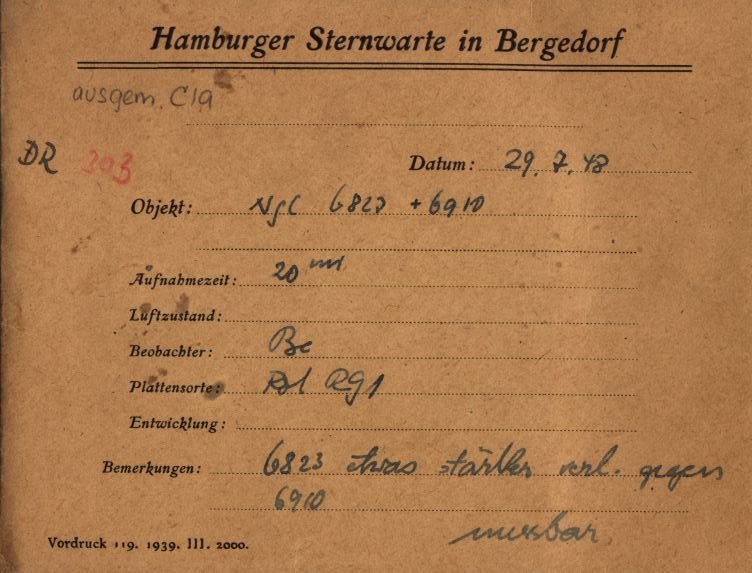 Hamburger Sternwarte in Bergedorf
ausgem. C19
DR 303
Datum: 29. 7. 48
Objekt: NgC 6823 + 6910
Aufnahmezeit: 20
Luftzustand:
Beobachter: Be
Plattensorte: RG1
Entwicklung:
Bemerkungen: 6823 etwas stärker verl. gegen
6910
messbar.
Vordruck 119. 1939. III. 2000.